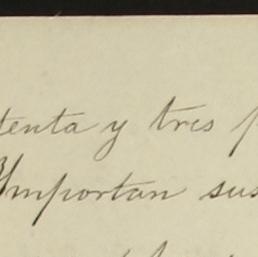 tenta y tres
Importan sus